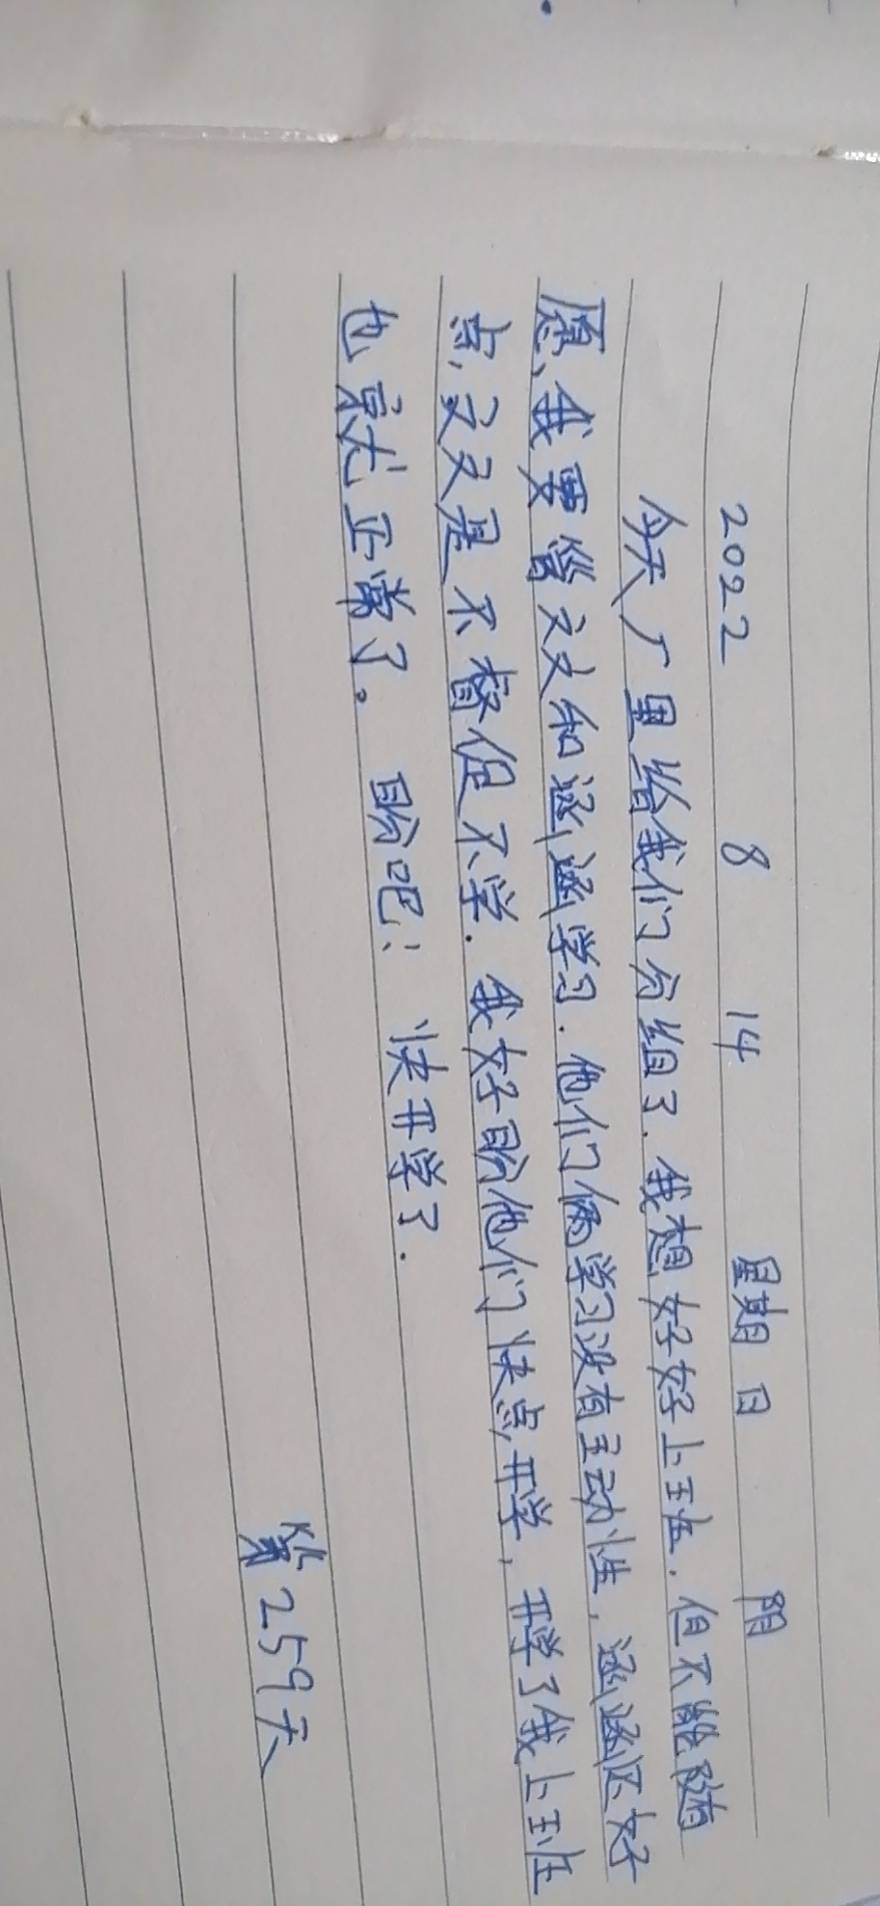 2022 8 14 星期日 阴
今天厂里给我们分组了.我想好好上班.但不能随
愿,我要管文文和涵涵学习.他们俩学习没有主动性,涵涵还好
点,文文是不督促不学.我好盼他们快点开学,开学了我上班
也就正常了。盼吧!快开学了.
第259天